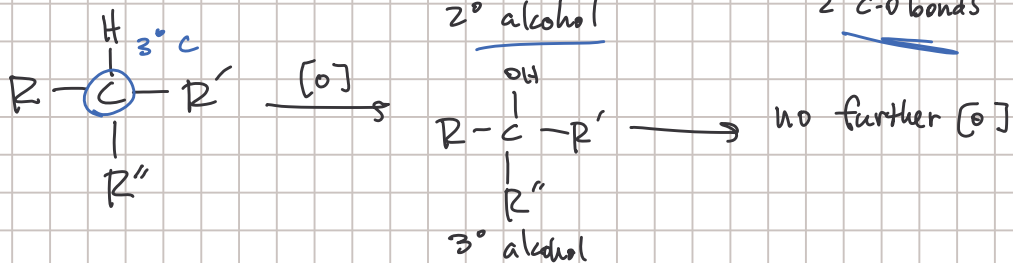 2° alcohol
2 C-O bonds
H
3° C
R - C - R'
[O]
R''
OH
R - C - R'
R''
3° alcohol
no further [O]